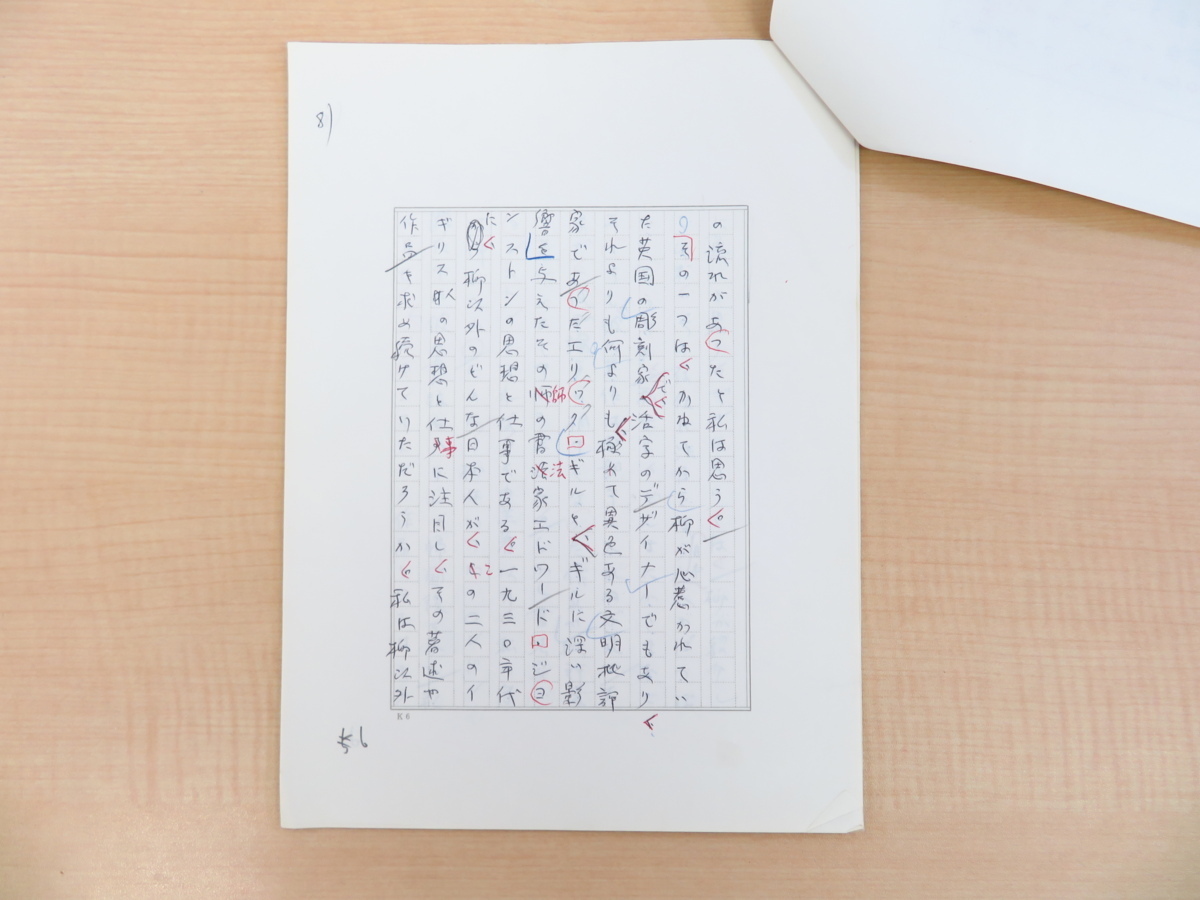 8)
の流れがあったと私は思う。
その一つは、かねてから柳が心惹かれてい
た英国の彫刻家で、活字のデザイナーでもあり、
それよりも何よりも極めて異色ある文明批評
家であったエリック・ギルと、ギルに深い影
響を与えたその師の書法家エドワード・ジョ
ンストンの思想と仕事である。一九三〇年代
に、柳以外のどんな日本人が、この二人のイ
ギリス人の思想と仕事に注目し、その著述や
作品を求め続けていただろうか。私は柳以外
K6